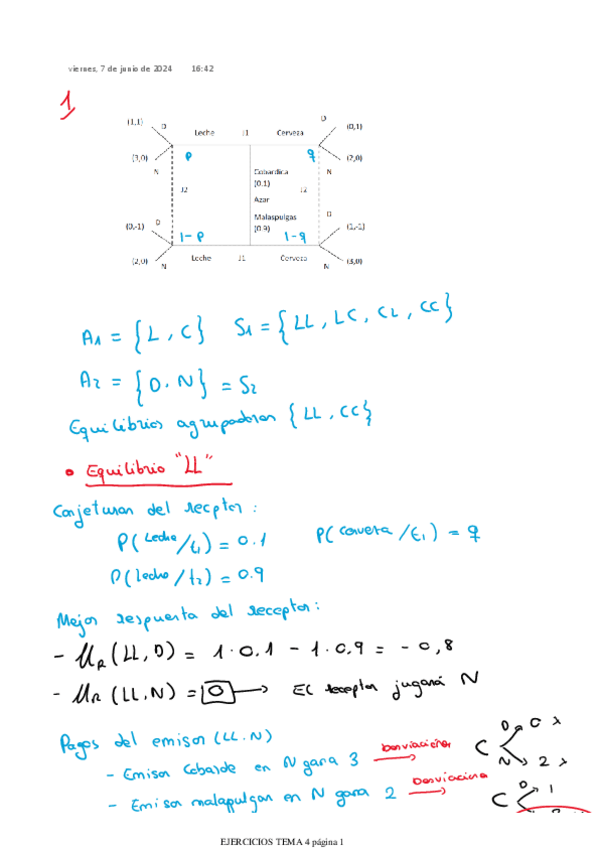 viernes, 7 de junio de 2024 16:42
1
(1,1) D Leche J1 Cerveza D (0,1)
(3,0) N p q N (2,0)
Cobardica
(0.1)
J2 Azar J2
Malaspulgas
(0.9)
(0,-1) D 1-p 1-q D (1,-1)
(2,0) N Leche J1 Cerveza N (3,0)
A1 = {L, C} S1 = {LL, LC, CL, CC}
A2 = {D, N} = S2
Equilibrios agrupadores {LL, CC}
• Equilibrio "LL"
Conjeturas del receptor:
P(Leche/t1) = 0.1 P(cerveza/t1) = q
P(leche/t2) = 0.9
Mejor respuesta del receptor:
- UR(LL, D) = 1·0.1 - 1·0.9 = -0,8
- UR(LL, N) = 0 → El receptor jugará N
Pagos del emisor (LL, N)
- Emisor Cobarde en N gana 3 desviación → C D → 0 x
N → 2 x
- Emisor malapulgas en N gana 2 desviación → C D 1
EJERCICIOS TEMA 4 página 1